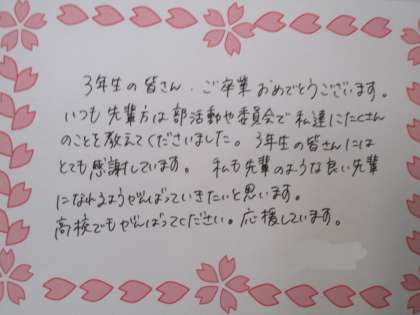 3年生の皆さん、ご卒業おめでとうございます。
いつも先輩方は部活動や委員会で私達にたくさん
のことを教えてくださいました。3年生の皆さんには
とても感謝しています。私も先輩のような良い先輩
になれるようがんばっていきたいと思います。
高校でもがんばってください。応援しています。